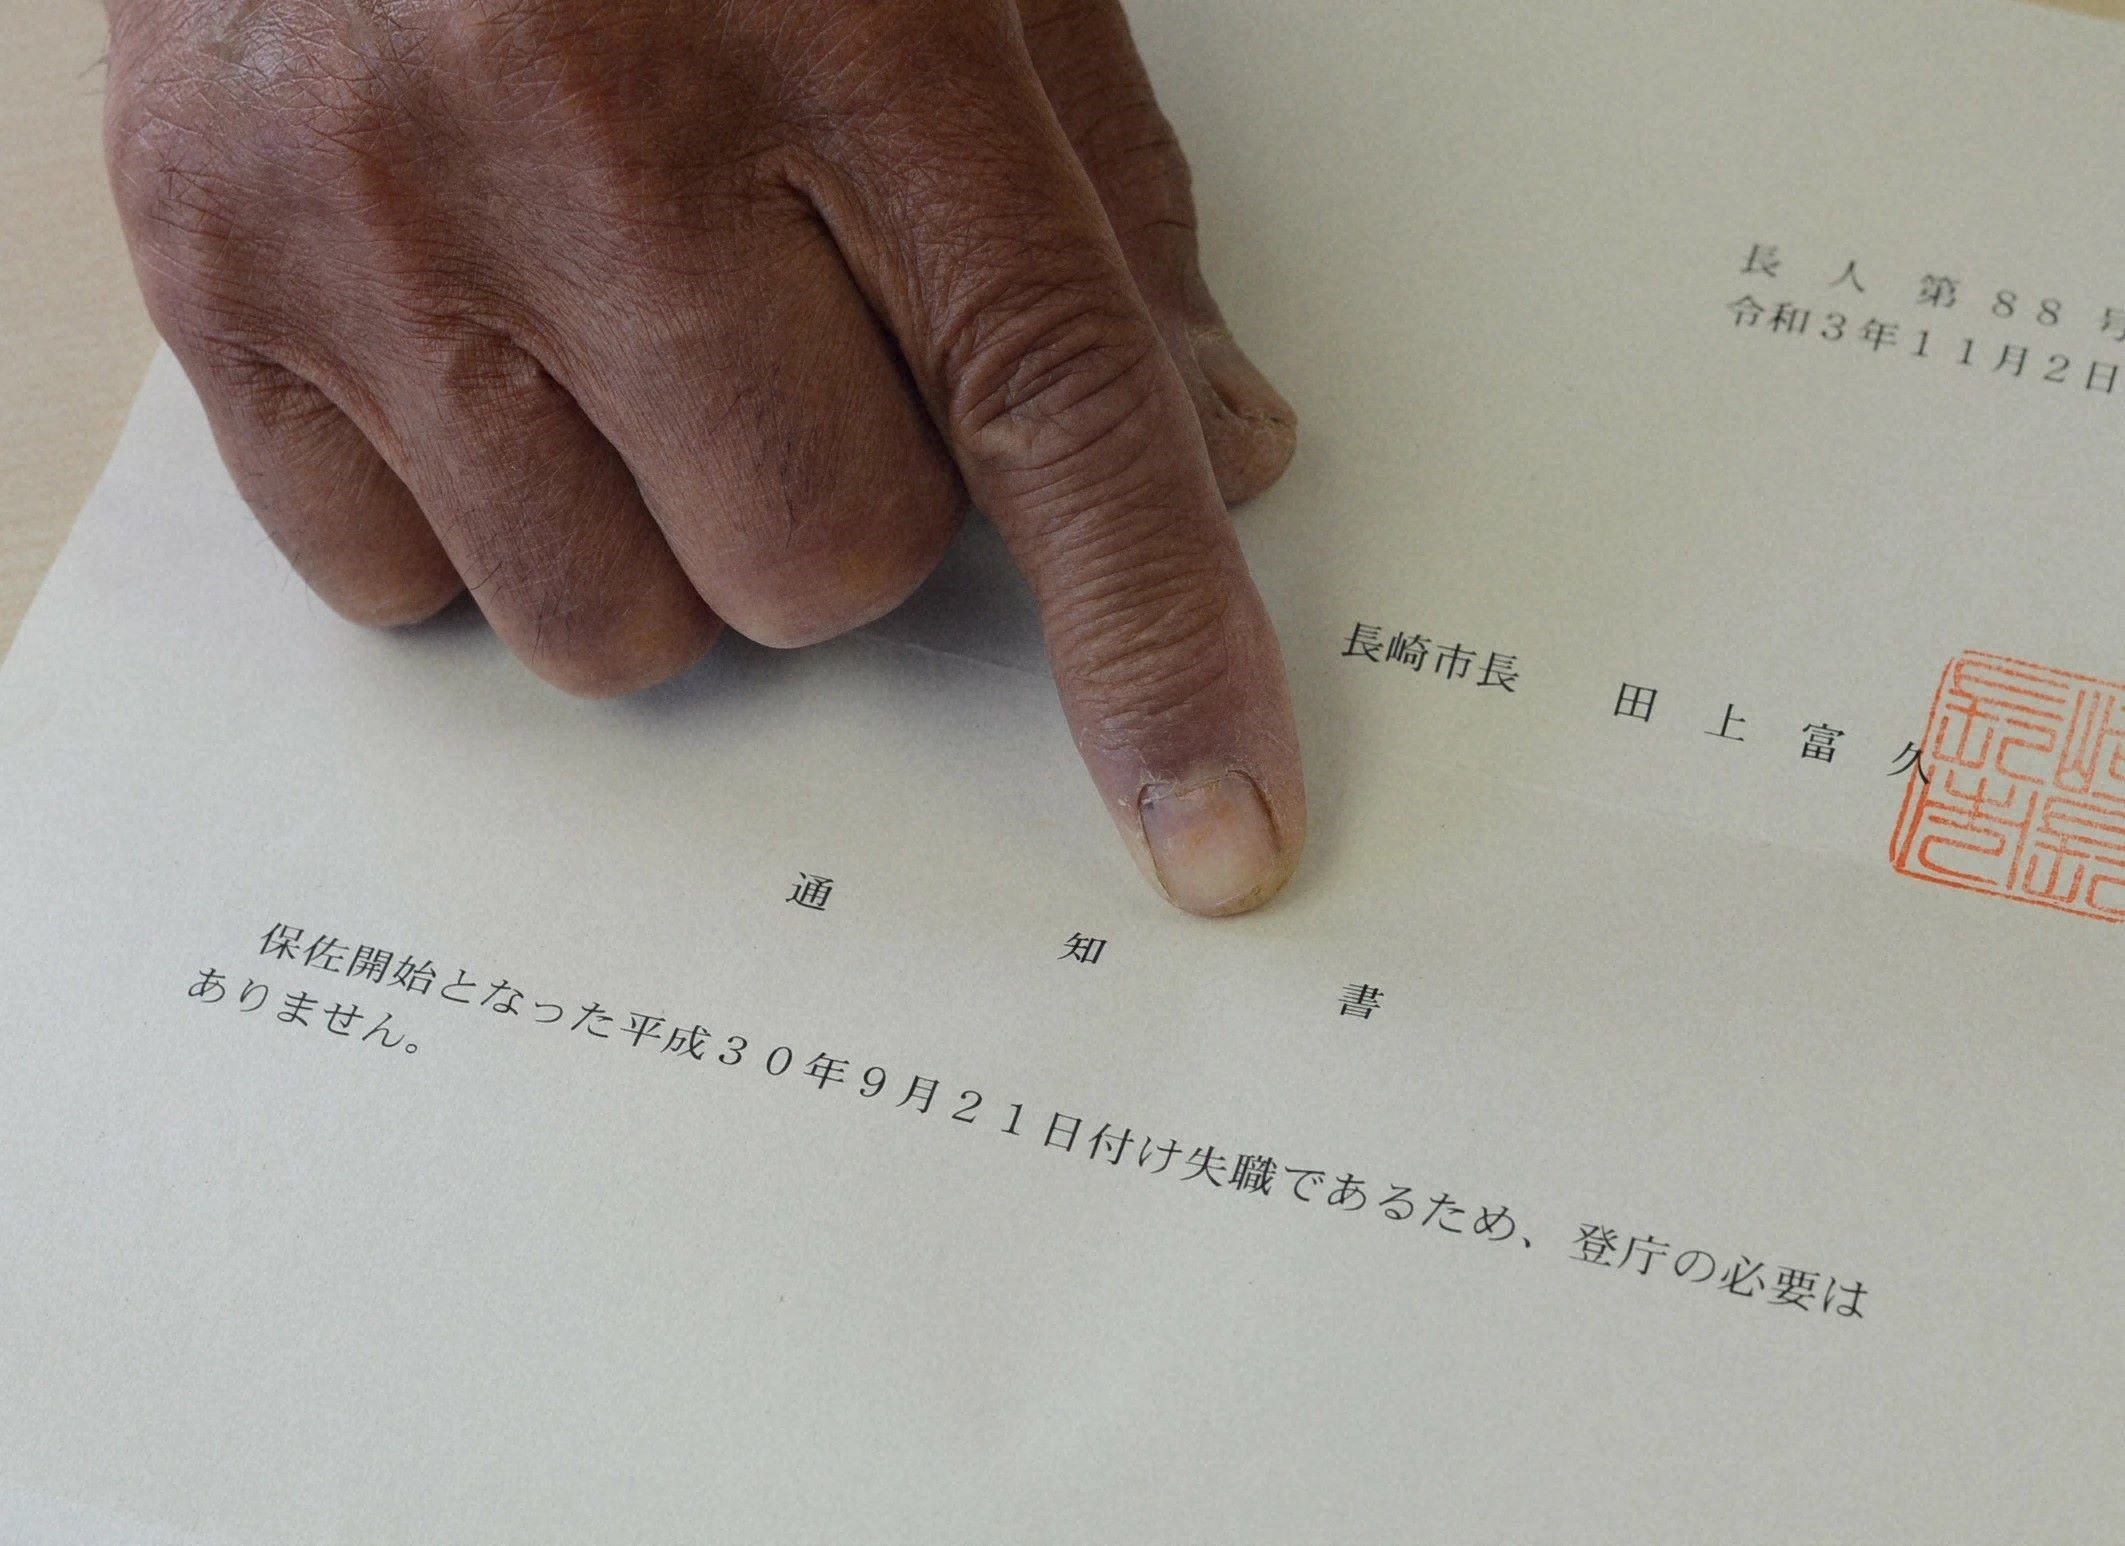 長人第８８号
令和３年１１月２日
長崎市長　田上富久
通知書
保佐開始となった平成３０年９月２１日付け失職であるため、登庁の必要は
ありません。